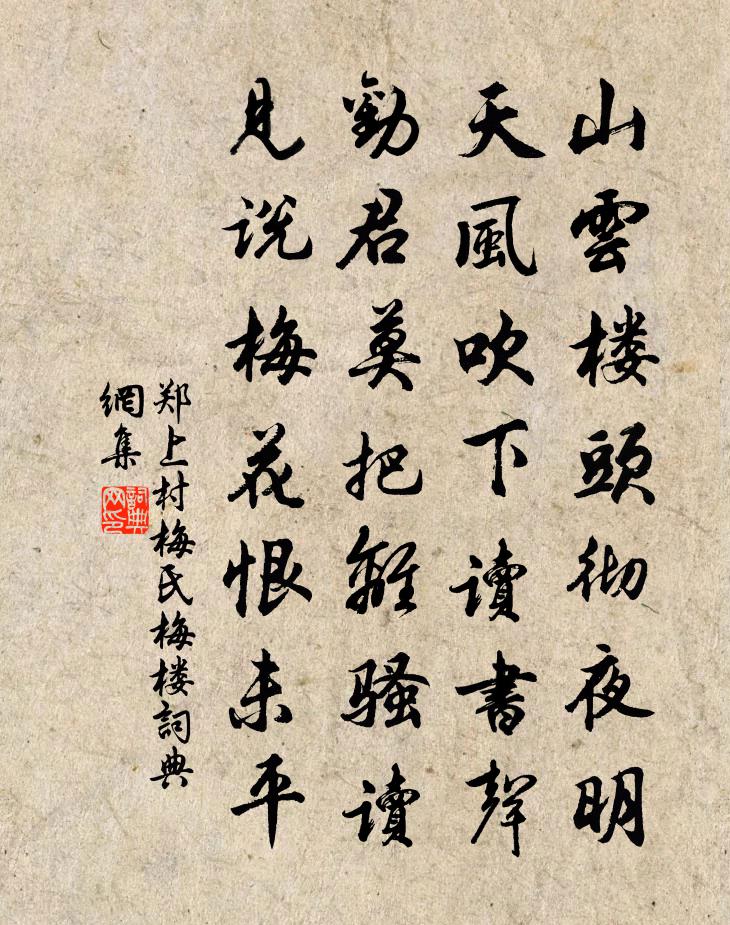 山雲楼頭彻夜明
天風吹下讀書聲
勸君莫把離骚讀
見说梅花恨未平
郑上村梅氏梅楼詞典
網集
詞典
网印